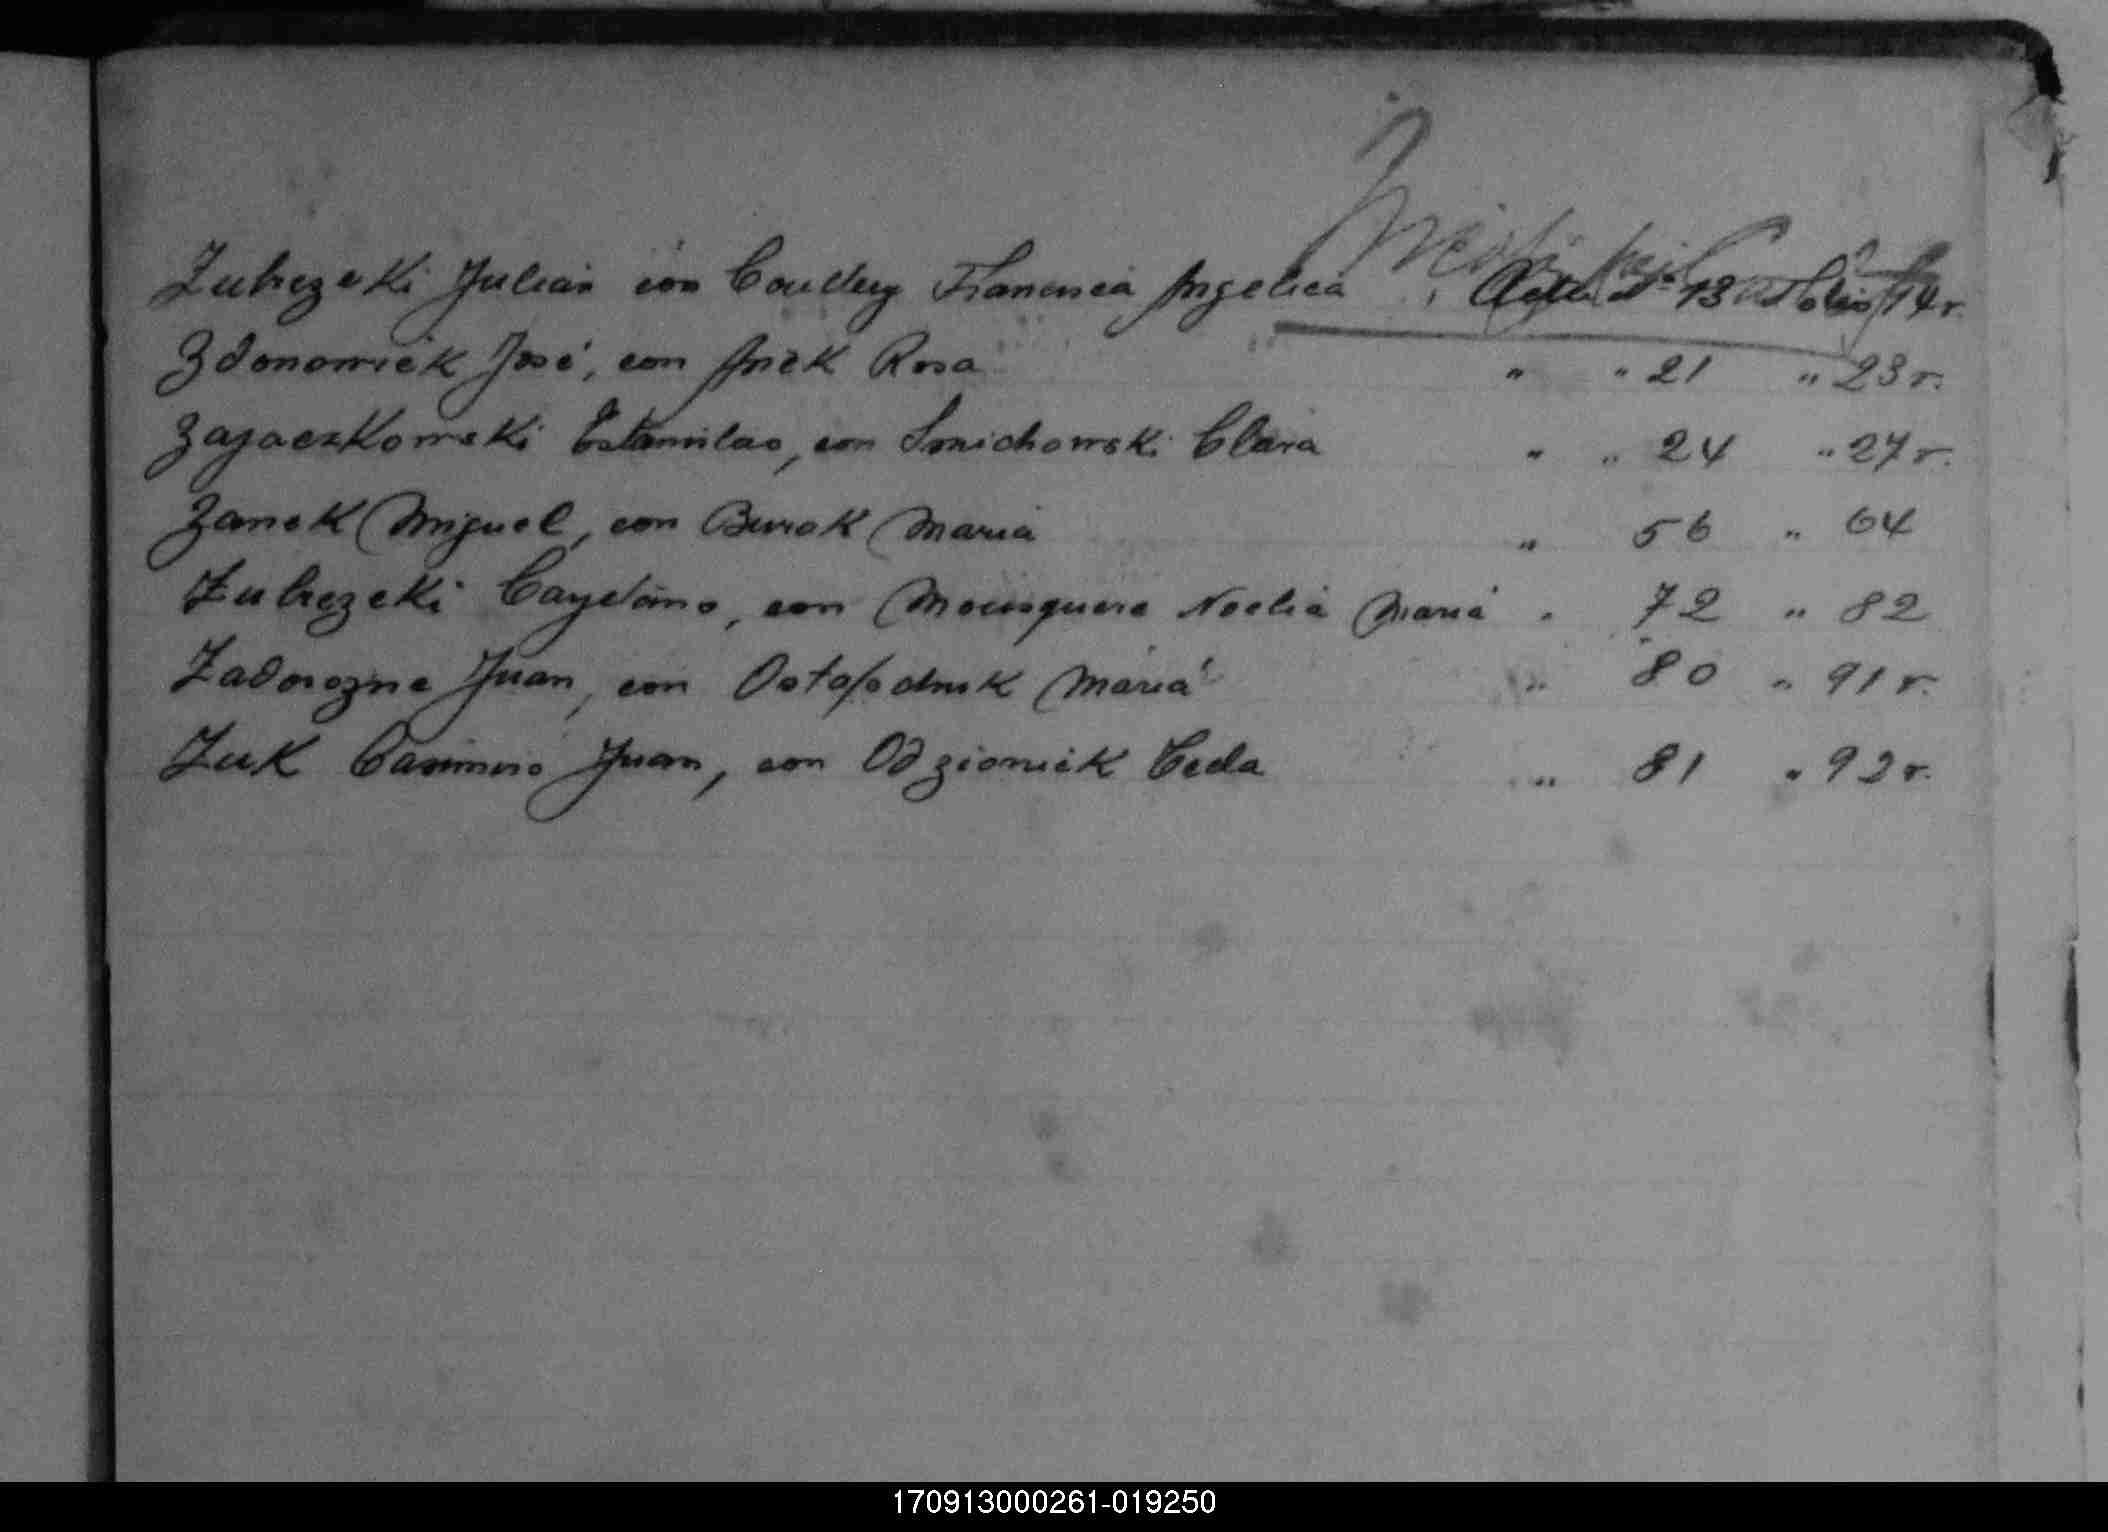 Zubrzeki Julian con Coudey Francisca Angelica, Acta Nº 13 Folio 14 r.
Zdonowiek José, con Anek Rosa " " 21 " 23 r.
Zajaczkowski Estanislao, con Smichowski Clara " " 24 " 27 r.
Zanek Miguel, con Burak Maria " 56 " 64
Zubrzeki Cayetano, con Mousquere Noelia Maria " 72 " 82
Zadorozne Juan, con Ostapodnik Maria " 80 " 91 r.
Zuk Casimiro Juan, con Odzioniek Ceda " 81 " 92 r.
170913000261-019250